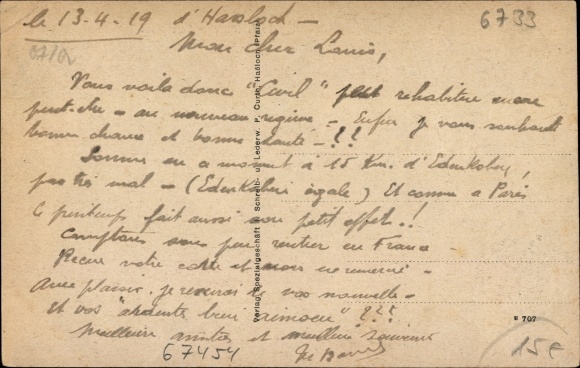 le 13-4-19 d'Hassloch -
6733
Mon cher Louis,
Vous voila donc "Civil" rehabitué encore
peut-être - au nouveau régime - Enfin je vous souhaite
bonne chance et bonne santé - ??
Sommes en ce moment à 15 Km. d'Edenkoben,
pas très mal - (Edenkoben égale) Et comme à Paris
le printemps fait aussi son petit effet.!
Comptons sous peu rentrer en France -
Reçu votre carte et vous en remercie -
Avec plaisir je recevrai de vos nouvelles -
Et vos " bien " ???
Meilleures amitiés et meilleurs souvenirs
67454
15€
Verlag Spezialgeschäft für Schreib- u. Lederw. P. Curth, Haßloch (Pfalz)
707